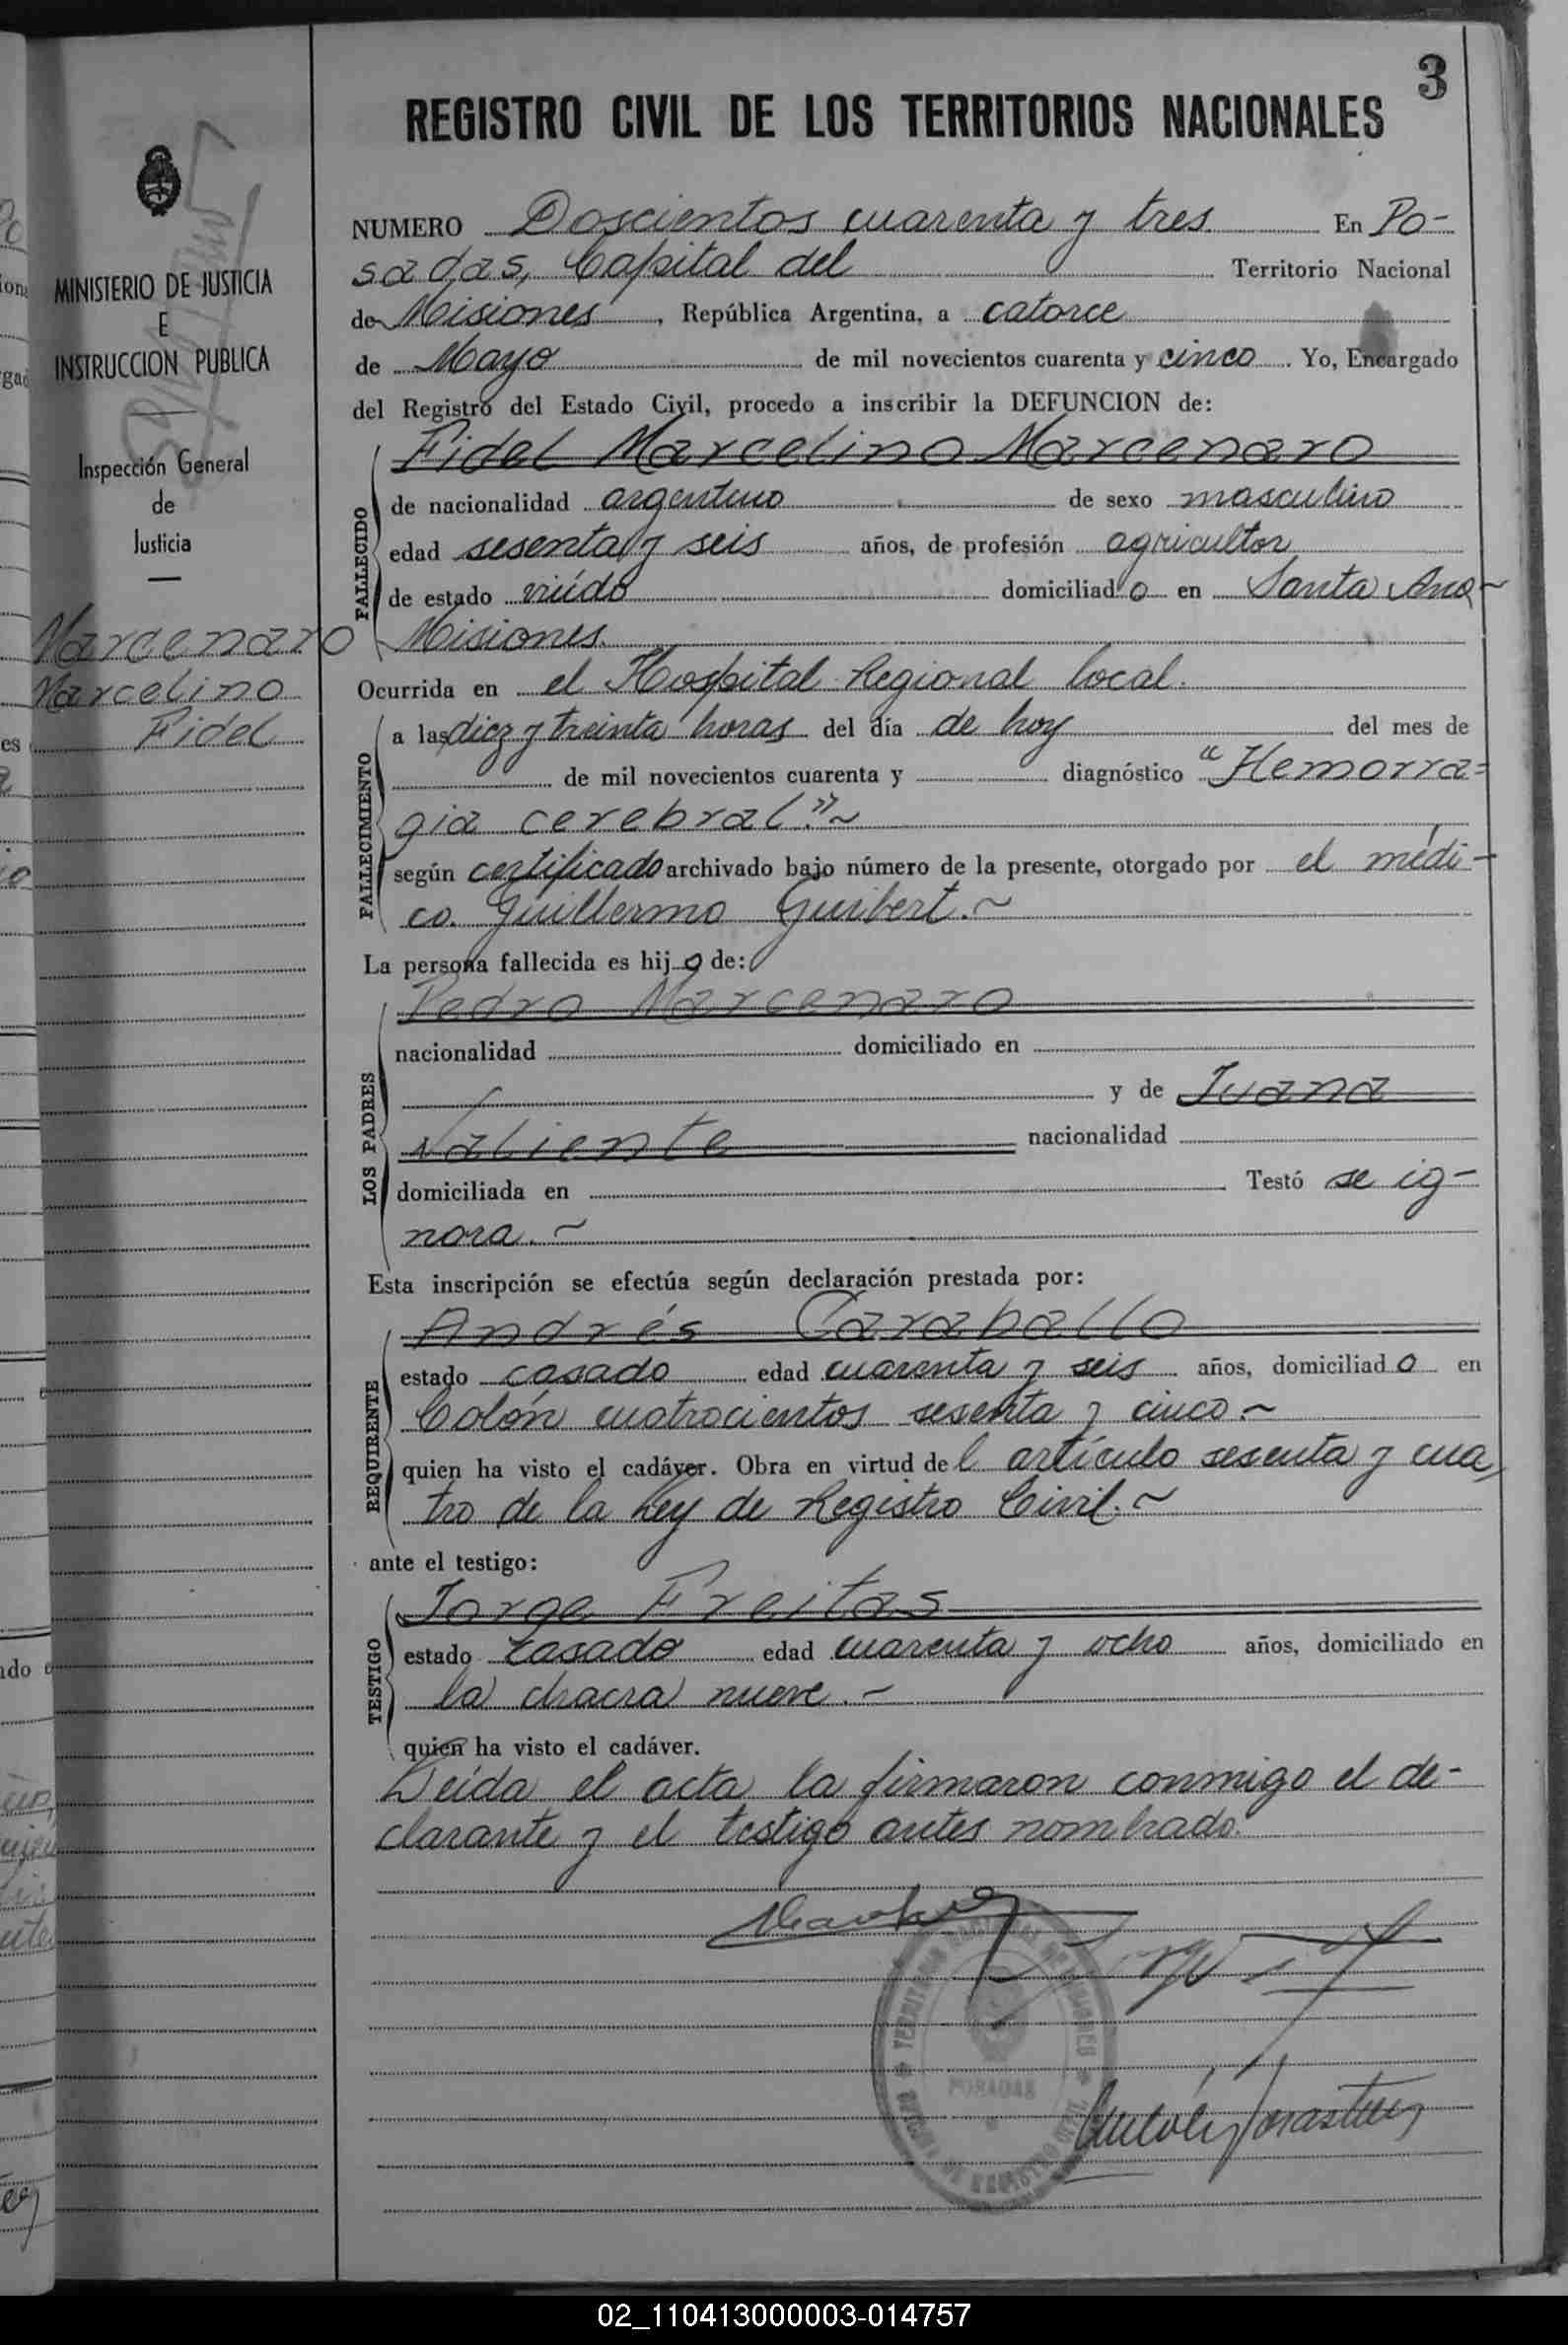 3
REGISTRO CIVIL DE LOS TERRITORIOS NACIONALES
MINISTERIO DE JUSTICIA
E
INSTRUCCION PUBLICA
Inspección General
de
Justicia
Marcenaro
Marcelino
Fidel
NUMERO Doscientos cuarenta y tres. En Po-
sadas, Capital del Territorio Nacional
de Misiones, República Argentina, a catorce
de Mayo de mil novecientos cuarenta y cinco. Yo, Encargado
del Registro del Estado Civil, procedo a inscribir la DEFUNCION de:
FALLECIDO
Fidel Marcelino Marcenaro
de nacionalidad argentino de sexo masculino
edad sesenta y seis años, de profesión agricultor
de estado viúdo domiciliado en Santa Ana-
Misiones.
Ocurrida en el Hospital Regional local.
FALLECIMIENTO
a las diez y treinta horas del día de hoy del mes de
de mil novecientos cuarenta y diagnóstico "Hemorra=
gia cerebral."~
según certificado archivado bajo número de la presente, otorgado por el médi-
co. Guillermo Guibert.~
La persona fallecida es hijo de:
LOS PADRES
Pedro Marcenaro
nacionalidad domiciliado en
y de Juana
Valiente nacionalidad
domiciliada en Testó se ig-
nora.~
Esta inscripción se efectúa según declaración prestada por:
REQUIRENTE
Andrés Caraballo
estado casado edad cuarenta y seis años, domiciliado en
Colón cuatrocientos sesenta y cinco.~
quien ha visto el cadáver. Obra en virtud del artículo sesenta y cua
tro de la Ley de Registro Civil.~
ante el testigo:
TESTIGO
Jorge Freitas
estado casado edad cuarenta y ocho años, domiciliado en
la chacra nueve.-
quien ha visto el cadáver.
Leída el acta la firmaron conmigo el de-
clarante y el testigo antes nombrado.
POSADAS
02_110413000003-014757